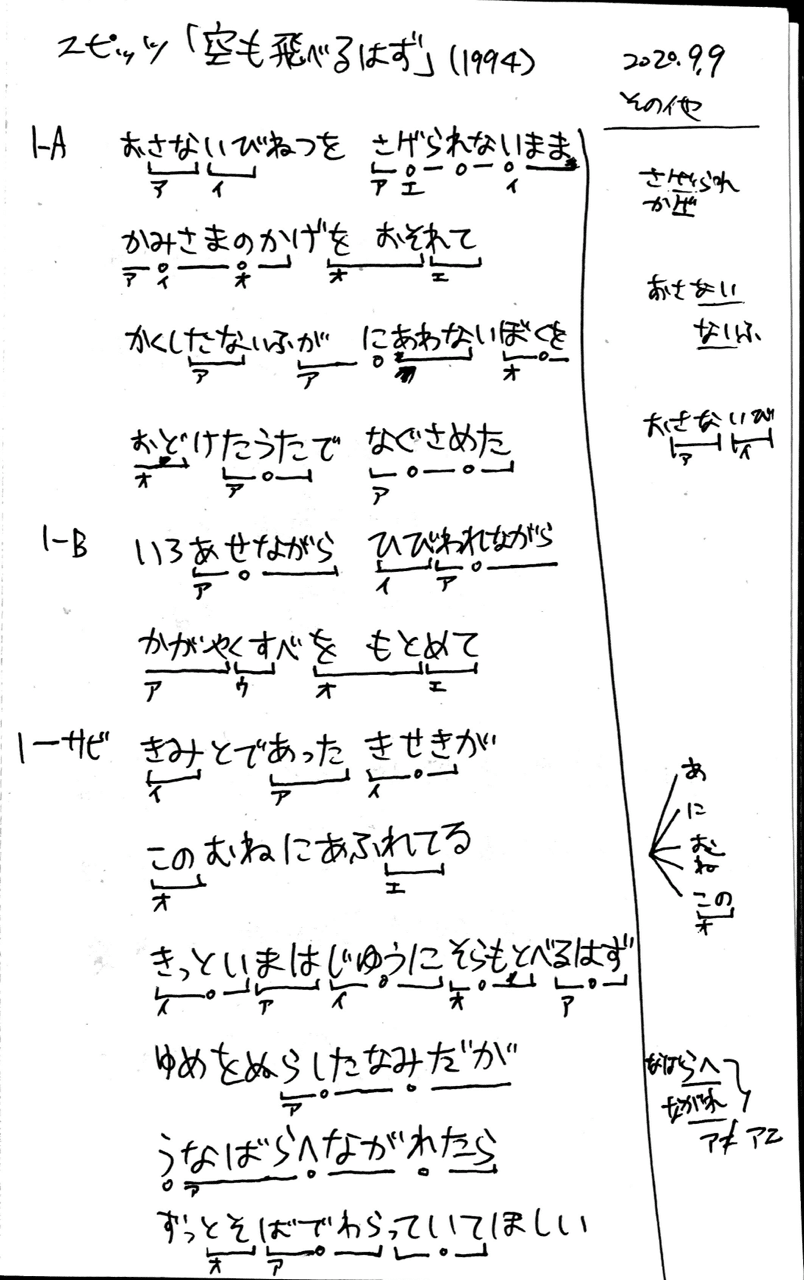 スピッツ「空も飛べるはず」(1994)
2020.9.9
その他
1-A おさないびねつを さげられないまま
ア イ ア エ イ
かみさまのかげを おそれて
ア イ オ オ エ
かくしたないふが にあわないぼくを
ア ア オ
おどけたうたで なぐさめた
オ ア ア
1-B いろあせながら ひびわれながら
ア イ ア
かがやくすべを もとめて
ア ウ オ エ
1-サビ きみとであった きせきが
イ ア イ
このむねにあふれてる
オ エ
きっといまはじゆうにそらもとべるはず
イ ア イ オ ア
ゆめをぬらしたなみだが
ア
うなばらへながれたら
ア
ずっとそばでわらっていてほしい
オ ア
さげられ
かげ
おさない
ないふ
おさないび
ア イ
あ
に
む
ね
この
オ
なばらへ
ながれ
ア≠アエ